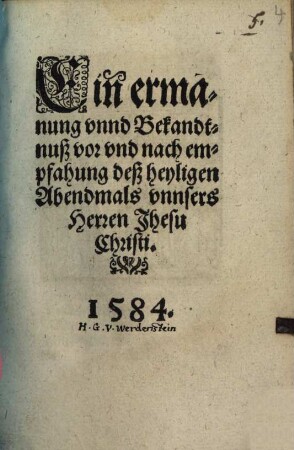 5. 4
Ein ermä-
nung vnnd Bekandt-
nuß vor vnd nach em-
pfahung deß heyligen
Abendmals vnnsers
Herren Jhesu
Christi.
1584.
H. G. V. Werdenstein